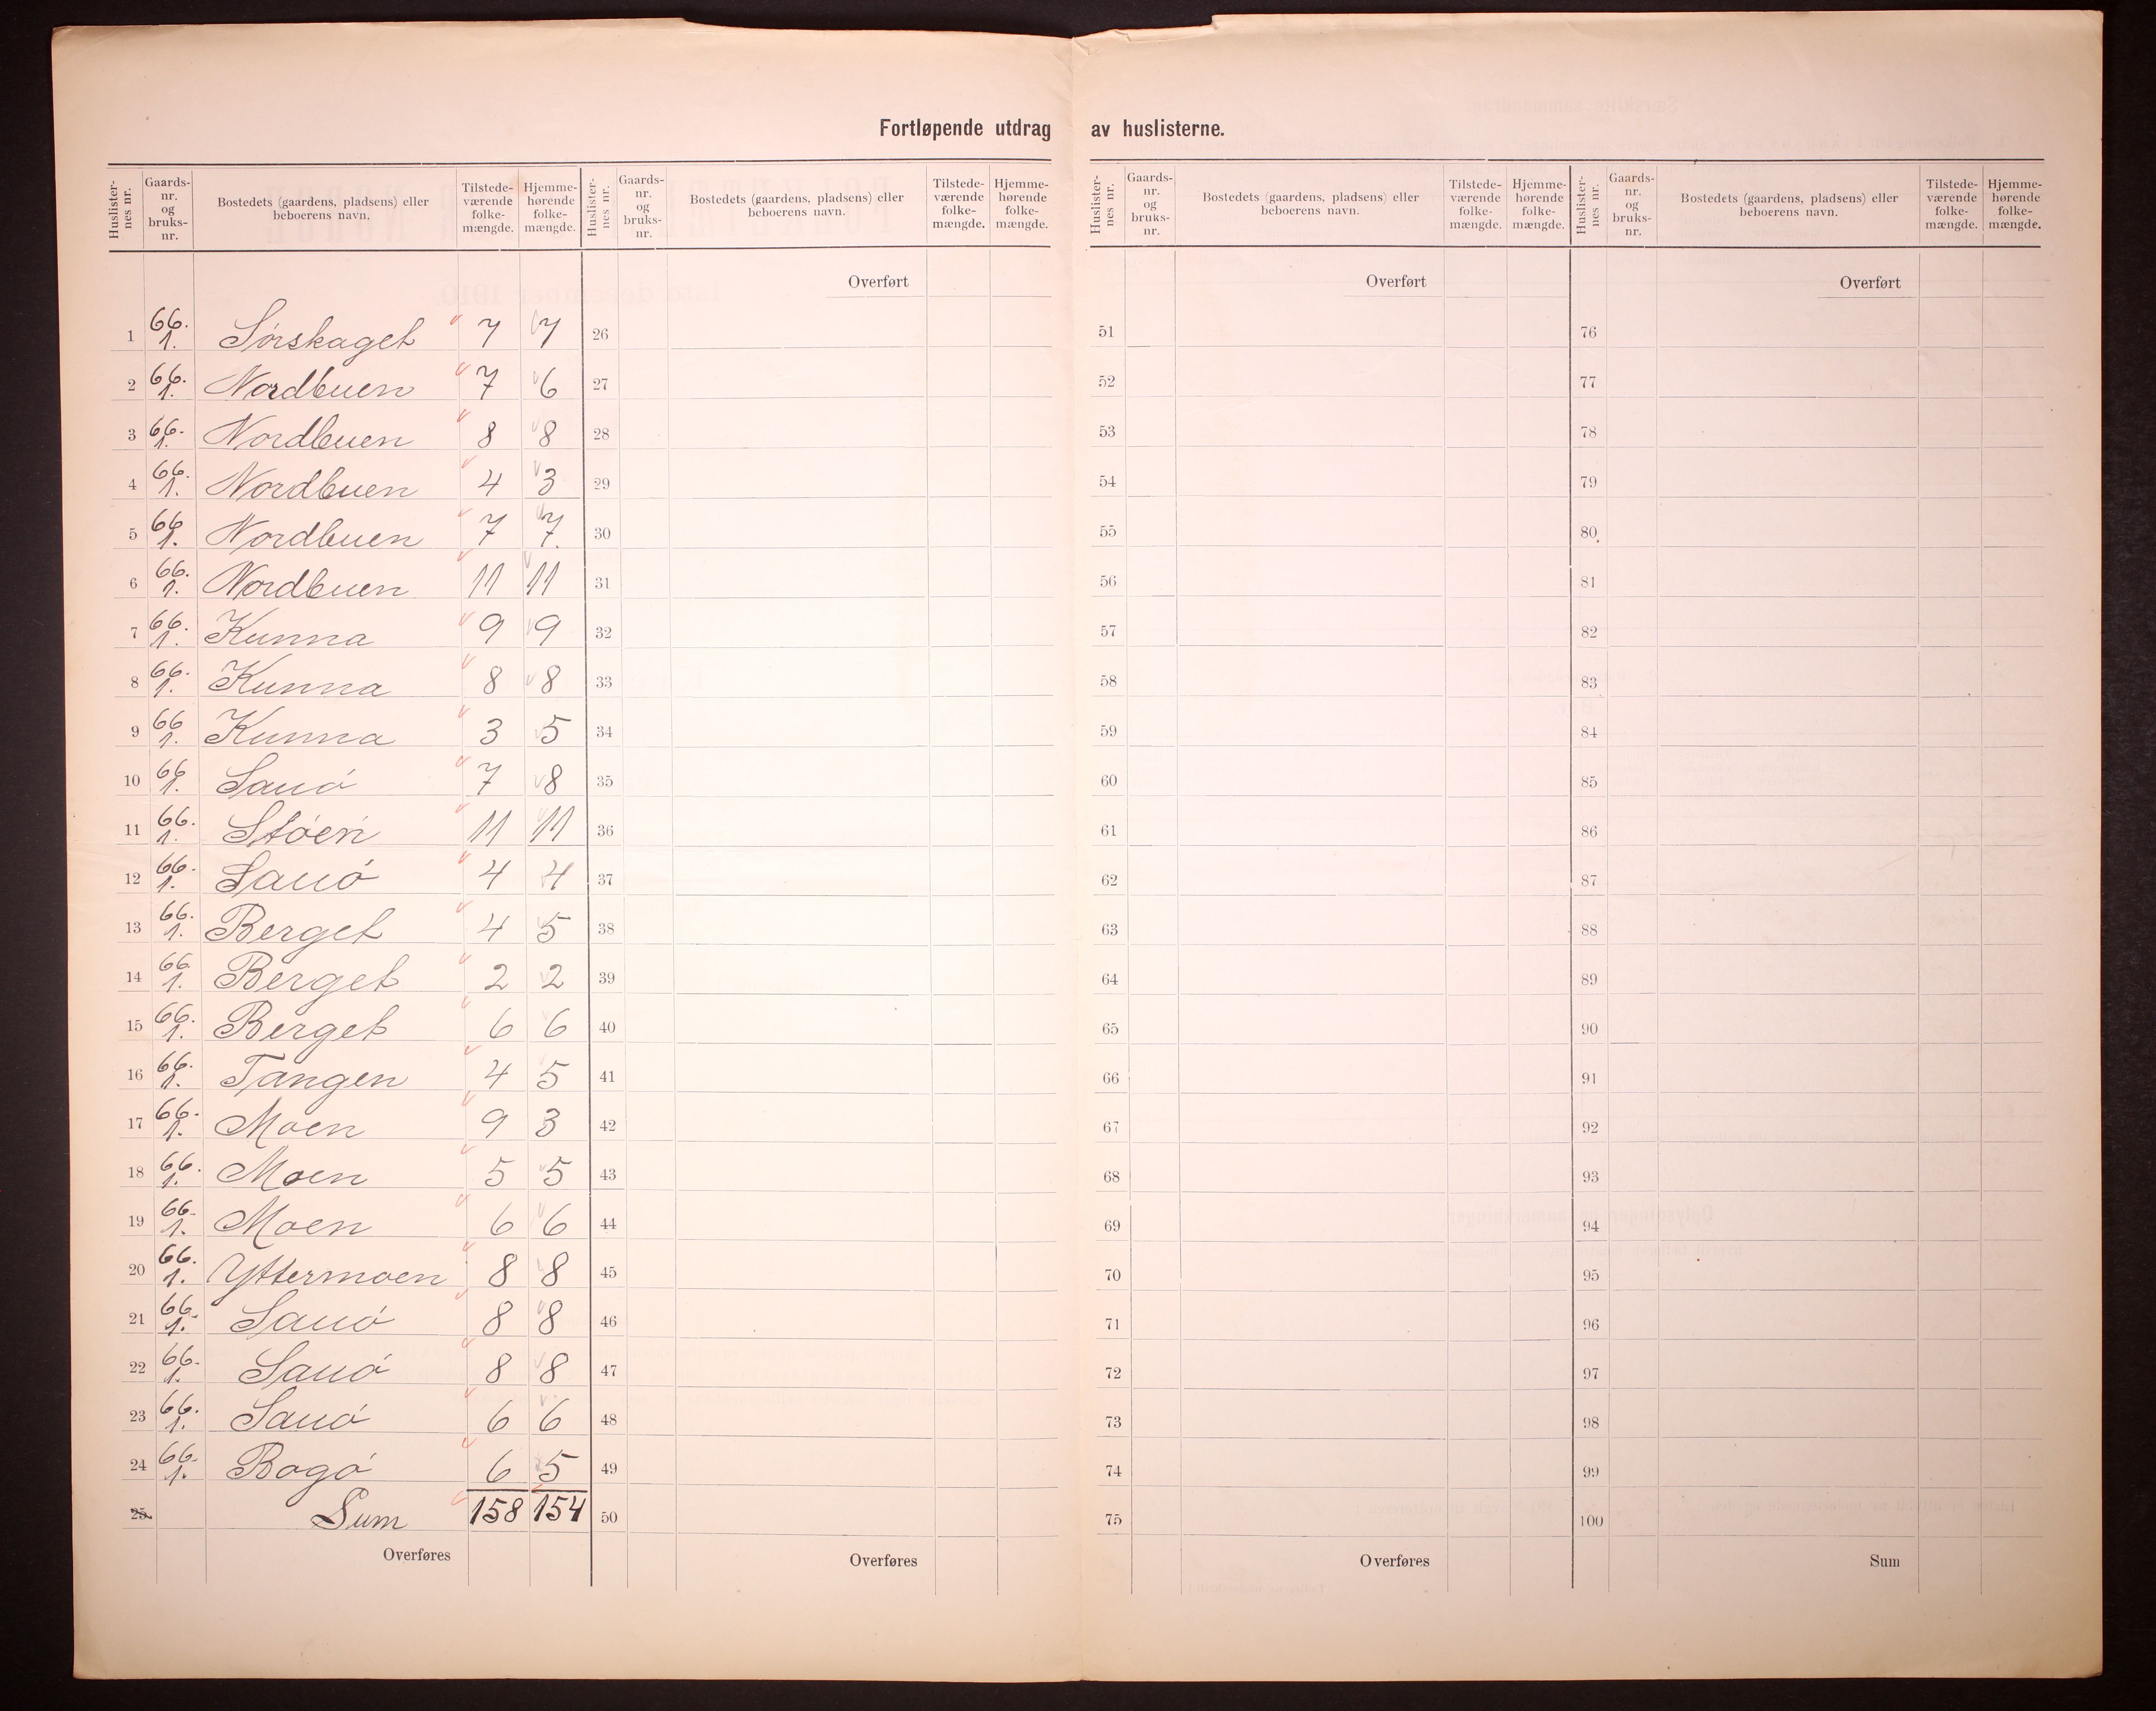 Fortløpende utdrag av huslisterne.
Huslister-nes nr. Gaards-nr. og bruks-nr. Bostedets (gaardens, pladsens) eller beboerens navn. Tilstede-værende folke-mængde. Hjemme-hørende folke-mængde. Huslister-nes nr. Gaards-nr. og bruks-nr. Bostedets (gaardens, pladsens) eller beboerens navn. Tilstede-værende folke-mængde. Hjemme-hørende folke-mængde. Huslister-nes nr. Gaards-nr. og bruks-nr. Bostedets (gaardens, pladsens) eller beboerens navn. Tilstede-værende folke-mængde. Hjemme-hørende folke-mængde. Huslister-nes nr. Gaards-nr. og bruks-nr. Bostedets (gaardens, pladsens) eller beboerens navn. Tilstede-værende folke-mængde. Hjemme-hørende folke-mængde.
Overført Overført Overført
1 66. 1. Sørskaget 7 7 26 51 76
2 66. 1. Nordbuen 7 6 27 52 77
3 66. 1. Nordbuen 8 8 28 53 78
4 66. 1. Nordbuen 4 3 29 54 79
5 66 1. Nordbuen 7 7. 30 55 80
6 66. 1. Nordbuen 11 11 31 56 81
7 66. 1. Kunna 9 9 32 57 82
8 66. 1. Kunna 8 8 33 58 83
9 66 1. Kunna 3 5 34 59 84
10 66 1. Sauó 7 8 35 60 85
11 66. 1. Støen 11 11 36 61 86
12 66. 1. Sauó 4 4 37 62 87
13 66. 1. Berget 4 5 38 63 88
14 66. 1. Berget 2 2 39 64 89
15 66. 1. Berget 6 6 40 65 90
16 66. 1. Tangen 4 5 41 66 91
17 66. 1. Moen 9 3 42 67 92
18 66. 1. Moen 5 5 43 68 93
19 66. 1. Moen 6 6 44 69 94
20 66. 1. Yttermoen 8 8 45 70 95
21 66. 1. Sauó 8 8 46 71 96
22 66. 1. Sauó 8 8 47 72 97
23 66. 1. Sauó 6 6 48 73 98
24 66. 1. Bogó 6 5 49 74 99
25 Sum 158 154 50 75 100
Overføres Overføres Overføres Sum